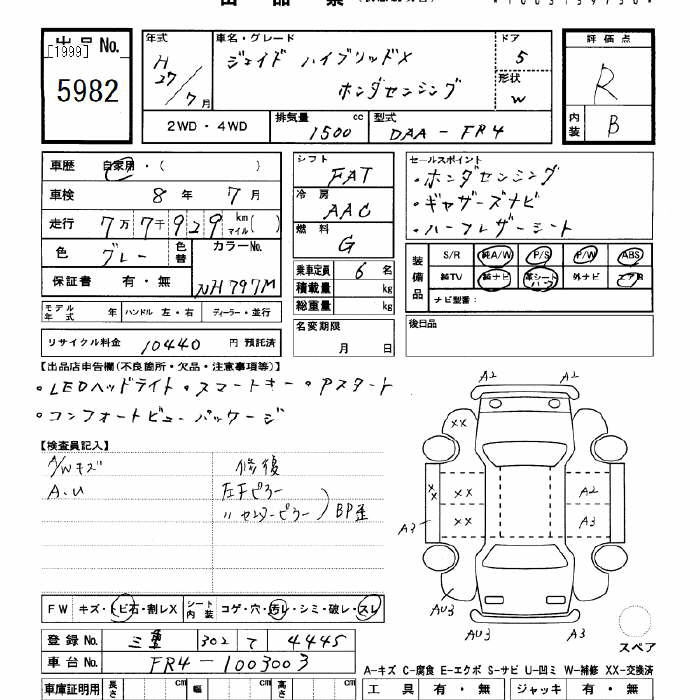 出品No. [1999] 5982
年式 H27/7月
車名・グレード ジェイド ハイブリッドX
ホンダセンシング
ドア 5
形状 W
評価点 R
内装 B
2WD・4WD
排気量 1500 cc
型式 DAA-FR4
車歴 自家用・( )
車検 8年 7月
走行 7万7千929 km マイル( )
色 グレー 色替 カラーNo. NH797M
保証書 有・無
モデル年式 年 ハンドル 左・右 ディーラー・並行
リサイクル料金 10440 円 預託済
シフト FAT
冷房 AAC
燃料 G
乗車定員 6 名
積載量 kg
総重量 kg
名変期限 月 日
セールスポイント
・ホンダセンシング
・ギャザーズナビ
・ハーフレザーシート
装備品 S/R 純A/W P/S P/W ABS
純TV 純ナビ 革シート 外ナビ エアB
ナビ型番:
後日品
【出品店申告欄(不良箇所・欠品・注意事項等)】
・LEDヘッドライト・スマートキー・Pスタート
・コンフォートビューパッケージ
【検査員記入】
A/Wキズ
A・U
修復
左Fピラー
〃 センターピラー ) BP歪
A2 A2
XX
XX XX A2
A3 XX A3
AU3 AU3
A3
スペア
FW キズ・トビ石・割レX シート内装 コゲ・穴・汚レ・シミ・破レ・スレ
登録No. 三重 302 て 4445
車台No. FR4-1003003
A-キズ C-腐食 E-エクボ S-サビ U-凹ミ W-補修 XX-交換済
車庫証明用 長さ cm 幅 cm 高さ cm
工具 有・無 ジャッキ 有・無